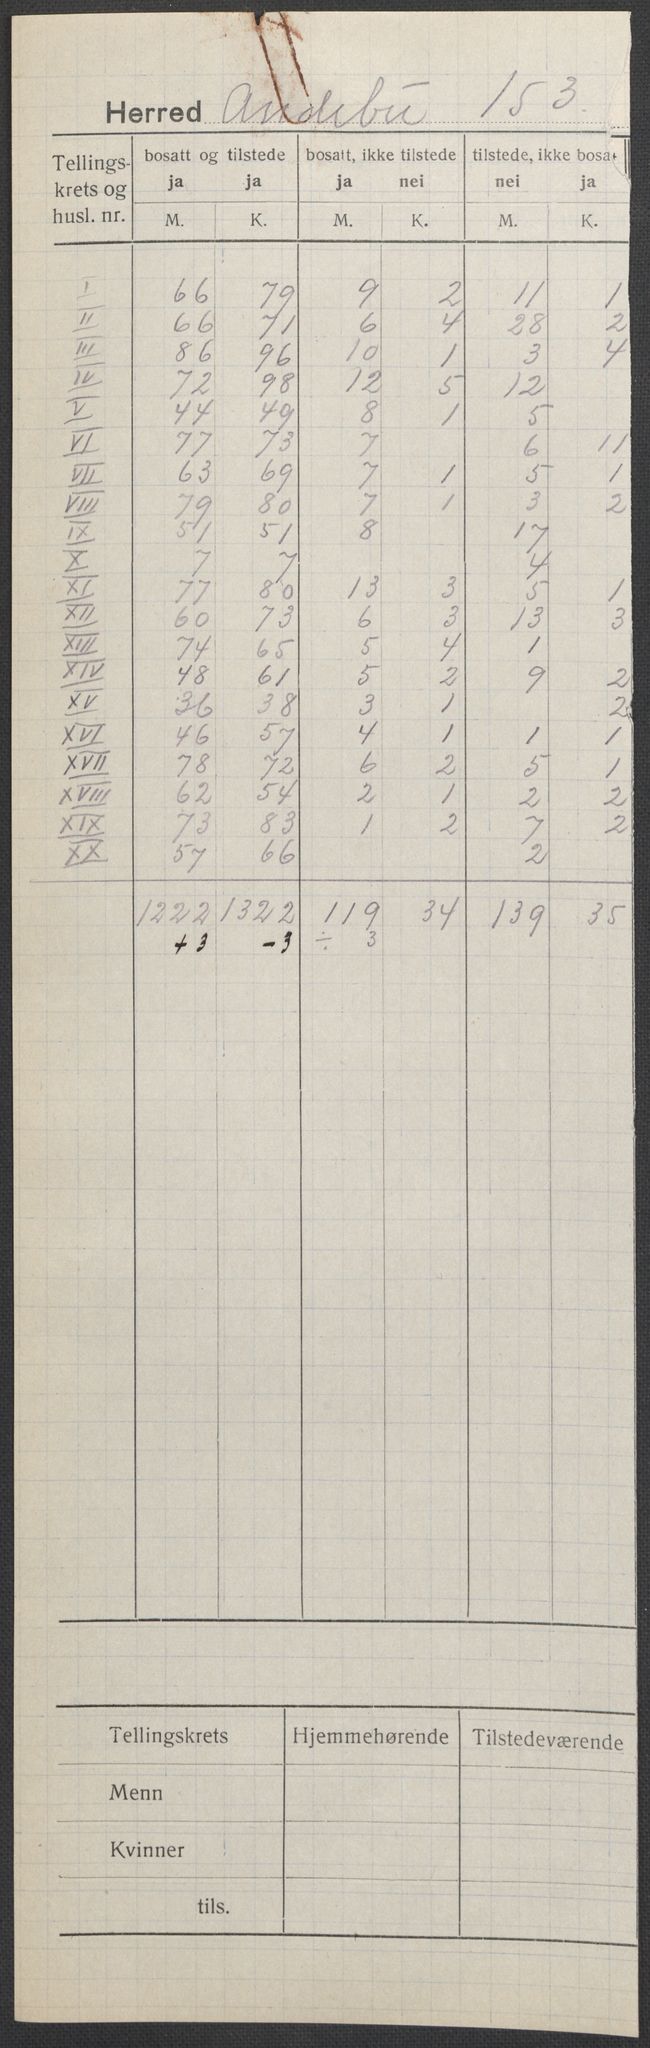 Herred Andebu 153
Tellings-krets og husl. nr. | bosatt og tilstede ja ja | bosatt, ikke tilstede ja nei | tilstede, ikke bosa nei ja
M. K. M. K. M. K.
I 66 79 9 2 11 1
II 66 71 6 4 28 2
III 86 96 10 1 3 4
IV 72 98 12 5 12
V 44 49 8 1 5
VI 77 73 7 6 11
VII 63 69 7 1 5 1
VIII 79 80 7 1 3 2
IX 51 51 8 17
X 7 7 4
XI 77 80 13 3 5 1
XII 60 73 6 3 13 3
XIII 74 65 5 4 1
XIV 48 61 5 2 9 2
XV 36 38 3 1 2
XVI 46 57 4 1 1 1
XVII 78 72 6 2 5 1
XVIII 62 54 2 1 2 2
XIX 73 83 1 2 7 2
XX 57 66 2
1222 1322 119 34 139 35
+3 -3 ÷ 3
Tellingskrets Hjemmehørende Tilstedeværende
Menn
Kvinner
tils.